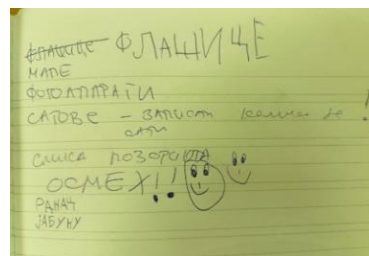 флашице ФЛАШИЦЕ
МАПЕ
ФОТОАППРАТИ
САТОВЕ – ЗАПИСАТИ колико је !
сати
СЛИКА ПОЗОРИШТА
ОСМЕХ!!
РАНАЦ
ЈАБУКУ